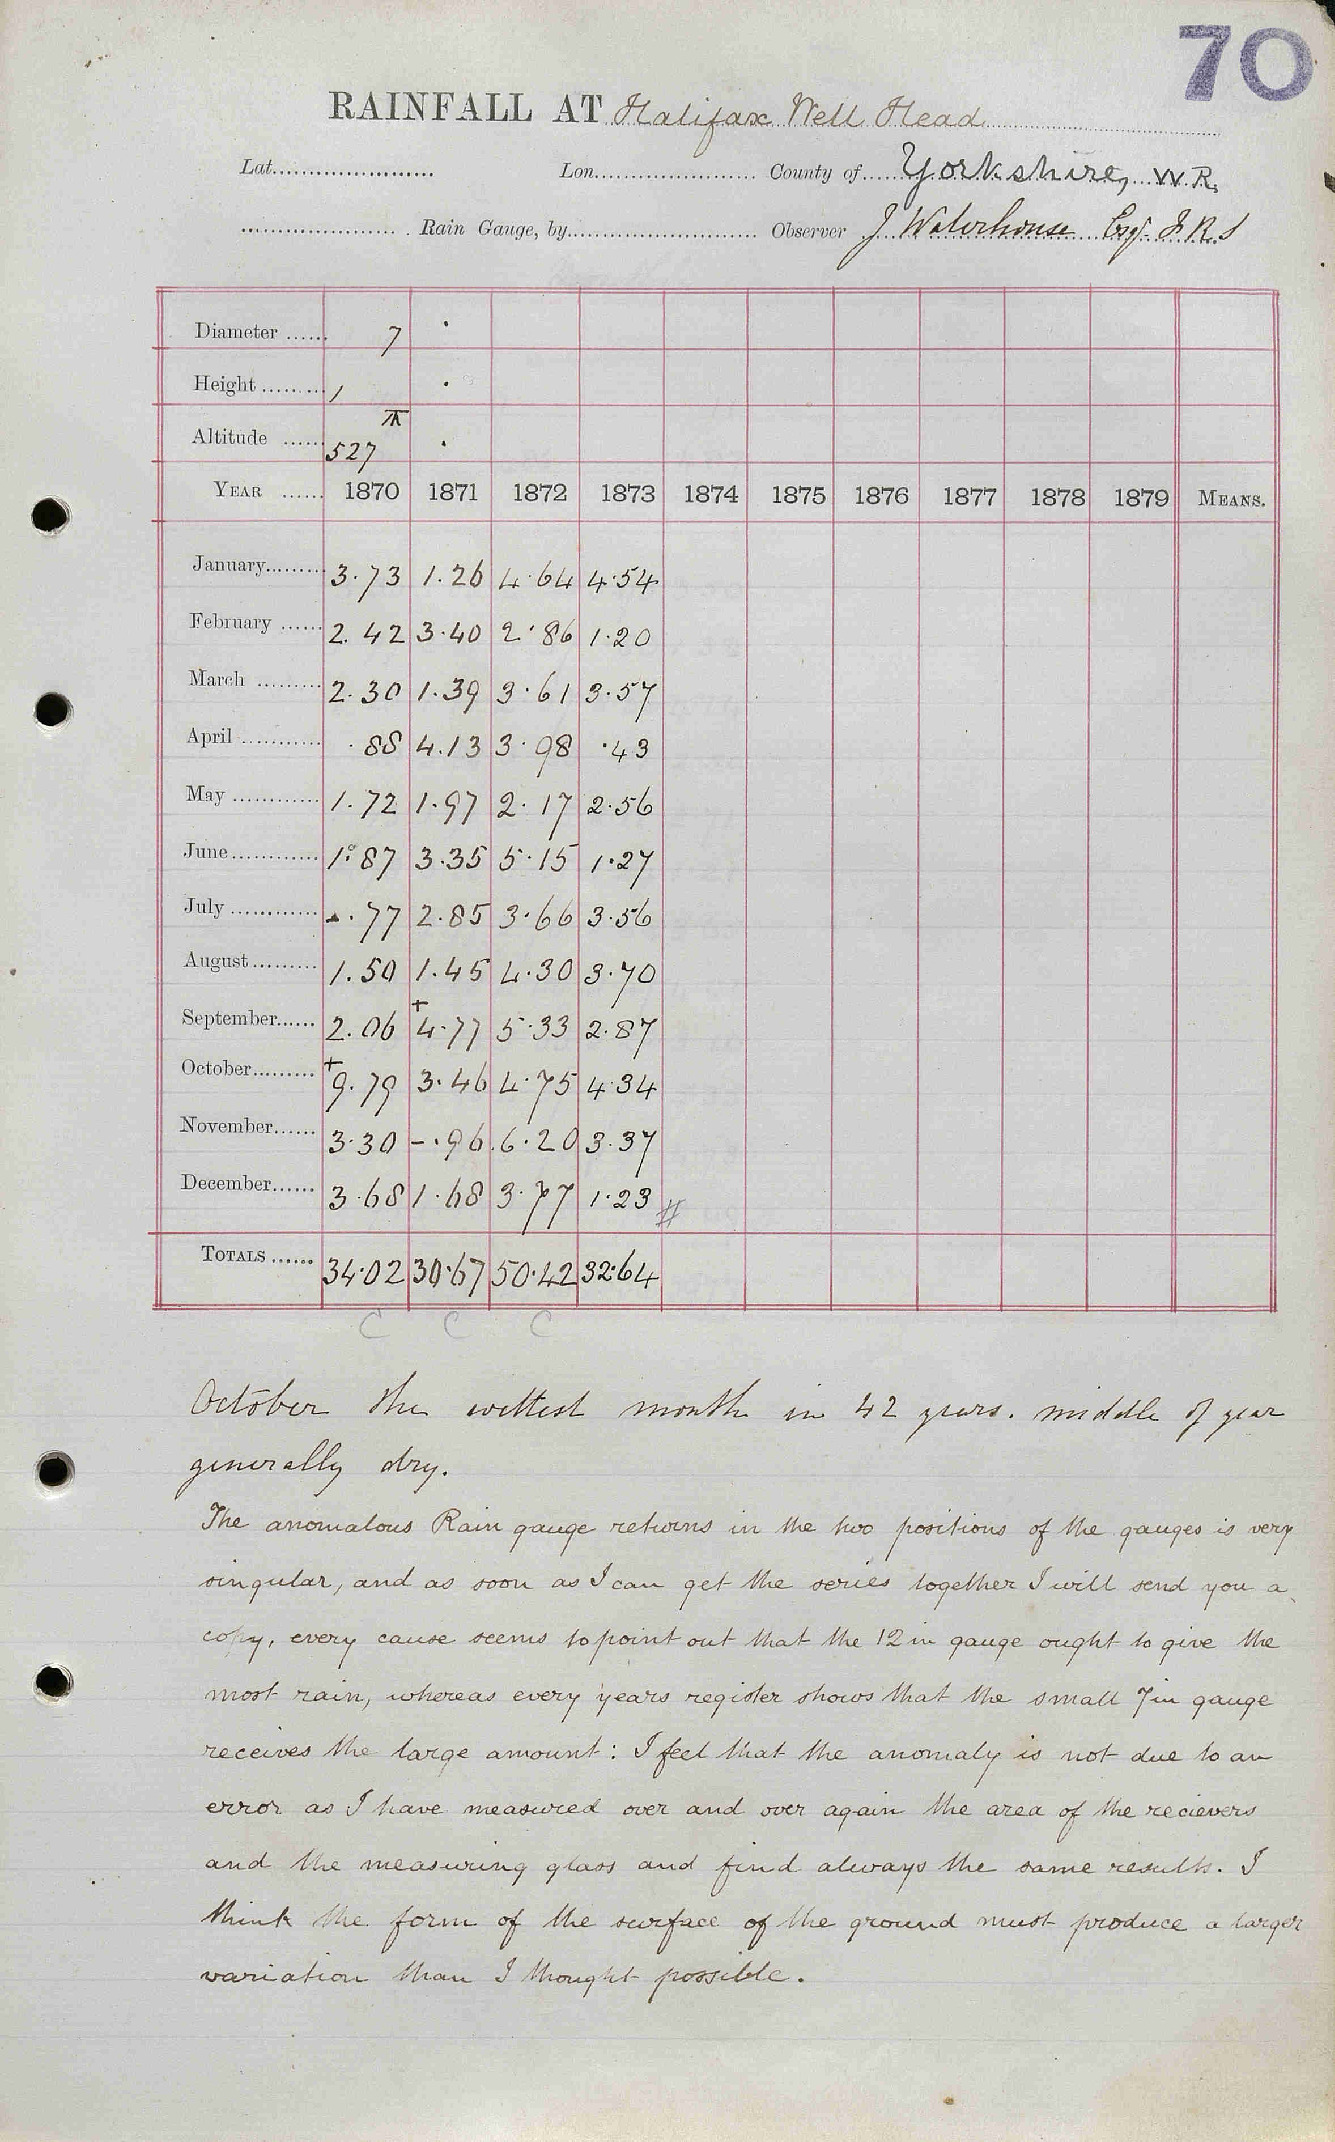 70
RAINFALL AT Halifax Well Head
Lat. Lon. County of Yorkshire, W.R.
Rain Gauge, by Observer J Waterhouse Esqr F.R.S
Diameter 7 .
Height 1 .
Altitude 527 .
YEAR 1870 1871 1872 1873 1874 1875 1876 1877 1878 1879 MEANS.
January 3.73 1.26 4.64 4.54
February 2.42 3.40 2.86 1.20
March 2.30 1.39 3.61 3.57
April .88 4.13 3.98 .43
May 1.72 1.97 2.17 2.56
June 1.87 3.35 5.15 1.27
July .77 2.85 3.66 3.56
August 1.50 1.45 4.30 3.70
September 2.06 +4.77 5.33 2.87
October +9.79 3.46 4.75 4.34
November 3.30 -.96 6.20 3.37
December 3.68 1.68 3.77 1.23 #
TOTALS 34.02 30.67 50.42 32.64
C C C
October the wettest month in 42 years. middle of year
generally dry.
The anomalous Rain gauge returns in the two positions of the gauges is very
singular, and as soon as I can get the series together I will send you a
copy, every cause seems to point out that the 12 in gauge ought to give the
most rain, whereas every years register shows that the small 7 in gauge
receives the large amount: I feel that the anomaly is not due to an
error as I have measured over and over again the area of the recievers
and the measuring glass and find always the same results. I
think the form of the surface of the ground must produce a larger
variation than I thought possible.